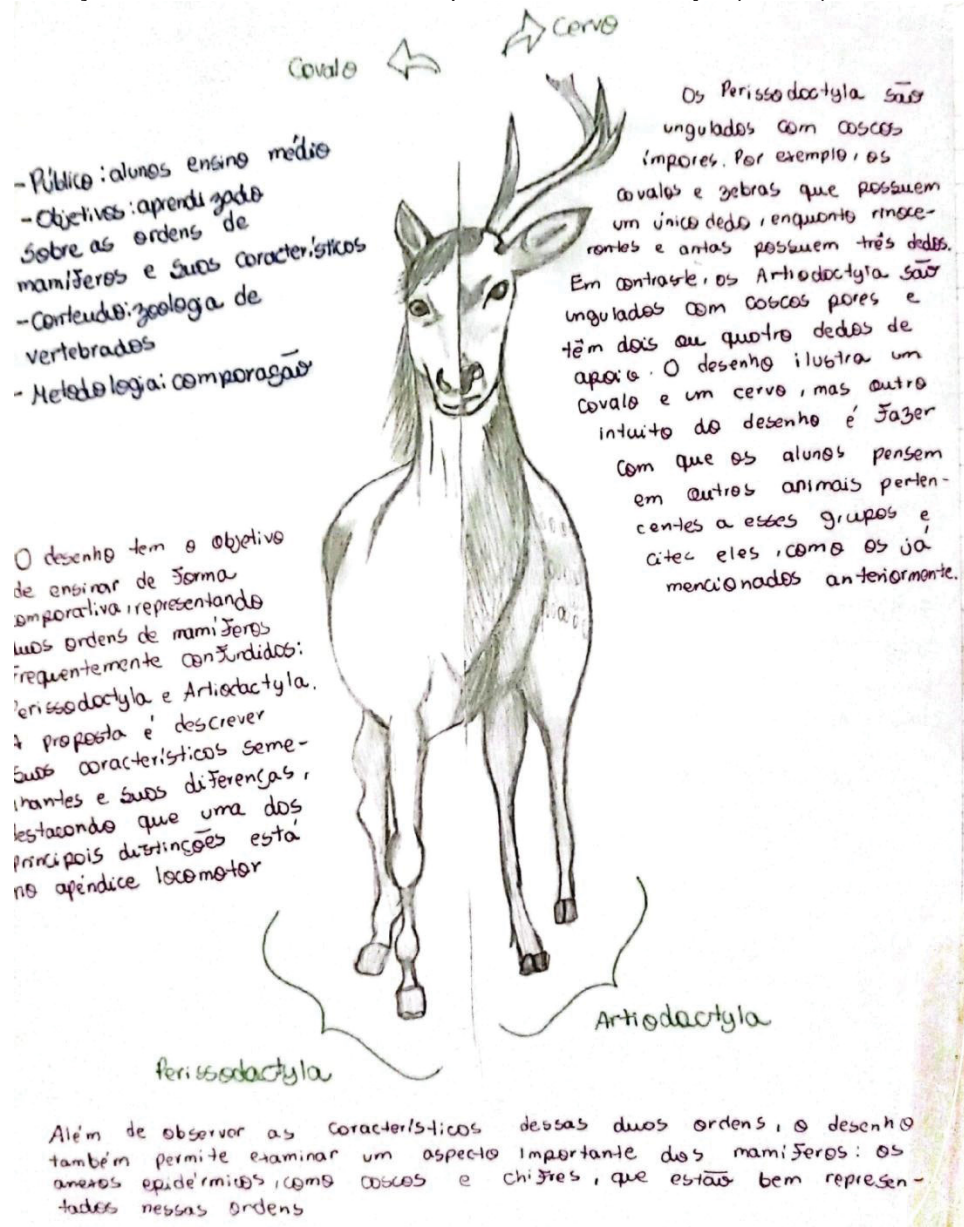 Cavalo
Cervo
- Público: alunos ensino médio
- Objetivos: aprendizado
sobre as ordens de
mamíferos e suas características
- Conteudo: zoologia de
vertebrados
- Metodologia: comparação
Os Perissodactyla são
ungulados com cascos
ímpares. Por exemplo, os
cavalos e zebras que possuem
um único dedo, enquanto rinoce-
rontes e antas possuem três dedos.
Em contraste, os Artiodactyla são
ungulados com cascos pares e
têm dois ou quatro dedos de
apoio. O desenho ilustra um
cavalo e um cervo, mas outro
intuito do desenho é fazer
com que os alunos pensem
em outros animais perten-
centes a esses grupos e
citec eles, como os já
mencionados anteriormente.
O desenho tem o objetivo
de ensinar de forma
omparativa, representando
uas ordens de mamíferos
frequentemente confundidos:
Perissodactyla e Artiodactyla.
A proposta é descrever
suas características seme-
lhantes e suas diferenças,
destacando que uma das
principais distinções está
no apêndice locomotor
Perissodactyla
Artiodactyla
Além de observar as características dessas duas ordens, o desenho
também permite examinar um aspecto importante dos mamíferos: os
anexos epidérmicos, como cascos e chifres, que estão bem represen-
tados nessas ordens